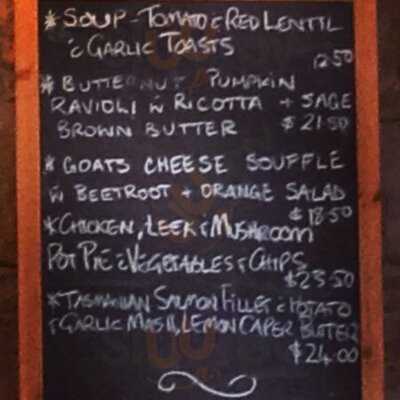 * SOUP - TOMATO & RED LENTIL
c̄ GARLIC TOASTS
12.50
* BUTTERNUT PUMPKIN
RAVIOLI W RICOTTA + SAGE
BROWN BUTTER $21.50
* GOATS CHEESE SOUFFLE
W BEETROOT + ORANGE SALAD
$18.50
* CHICKEN, LEEK & MUSHROOM
POT PIE c̄ VEGETABLES & CHIPS
$23.50
* TASMANIAN SALMON FILLET c̄ POTATO
& GARLIC MASH, LEMON CAPER BUTTER
$24.00